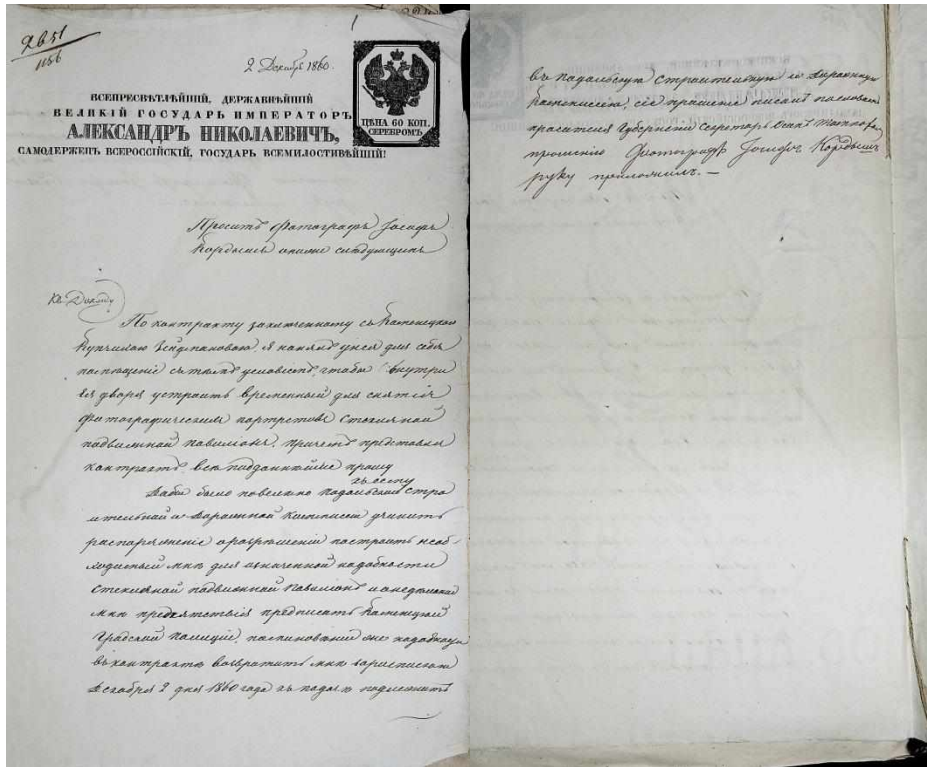 2651
1156
1
2 Декабря 1860.
ЦѢНА 60 КОП.
СЕРЕБРОМЪ.
ВСЕПРЕСВѢТЛѢЙШІЙ, ДЕРЖАВНѢЙШІЙ
ВЕЛИКІЙ ГОСУДАРЬ ИМПЕРАТОРЪ
АЛЕКСАНДРЪ НИКОЛАЕВИЧЪ,
САМОДЕРЖЕЦЪ ВСЕРОССІЙСКІЙ, ГОСУДАРЬ ВСЕМИЛОСТИВѢЙШІЙ!
Проситъ Фотографъ Іосифъ
Кордышъ о нижеслѣдующемъ
Къ Докладу
По контракту заключенному съ Каменецкою
Купчихою я нанялъ у нея для себя
помѣщеніе съ тѣмъ условіемъ, чтобы внутри
ея двора устроить временный для снятія
фотографическихъ портретовъ стеклянной
подвижной павиліонъ, причемъ представляя
контрактъ, всеподданнѣйше прошу
къ сему
Дабы было повелѣно Подольской Стро
ительной и Дорожной Коммисіи учинить
распоряженіе о разрѣшеніи построить необ-
ходимый мнѣ для означенной надобности
стеклянной подвижной Павиліонъ и о недѣланіи
мнѣ препятствія предписать Каменецкой
Градской Полиціи, по минованіи же надобности
въ контрактѣ возвратить мнѣ
Декабря 2 дня 1860 года къ подачѣ подлежитъ
въ Подольскую Строительную и Дорожную
Коммисію, сіе прошеніе писалъ со словъ
просителя Губернскій Секретарь
прошенію Фотографъ Іосифъ Кордышъ
руку приложилъ. —